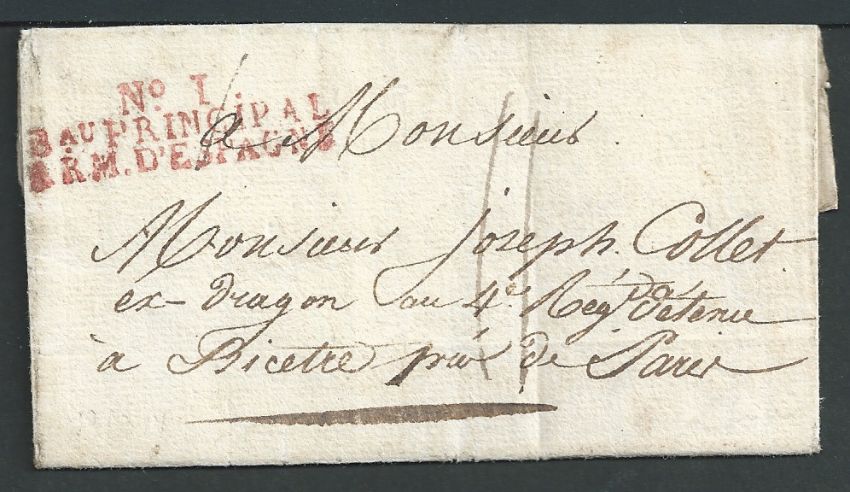 No I.
BAU PRINCIPAL
ARM. D'ESPAGNE
a Monsieur
Monsieur joseph. Collet
ex-dragon au 4e. Regt. détenu
à Bicetre près de Paris